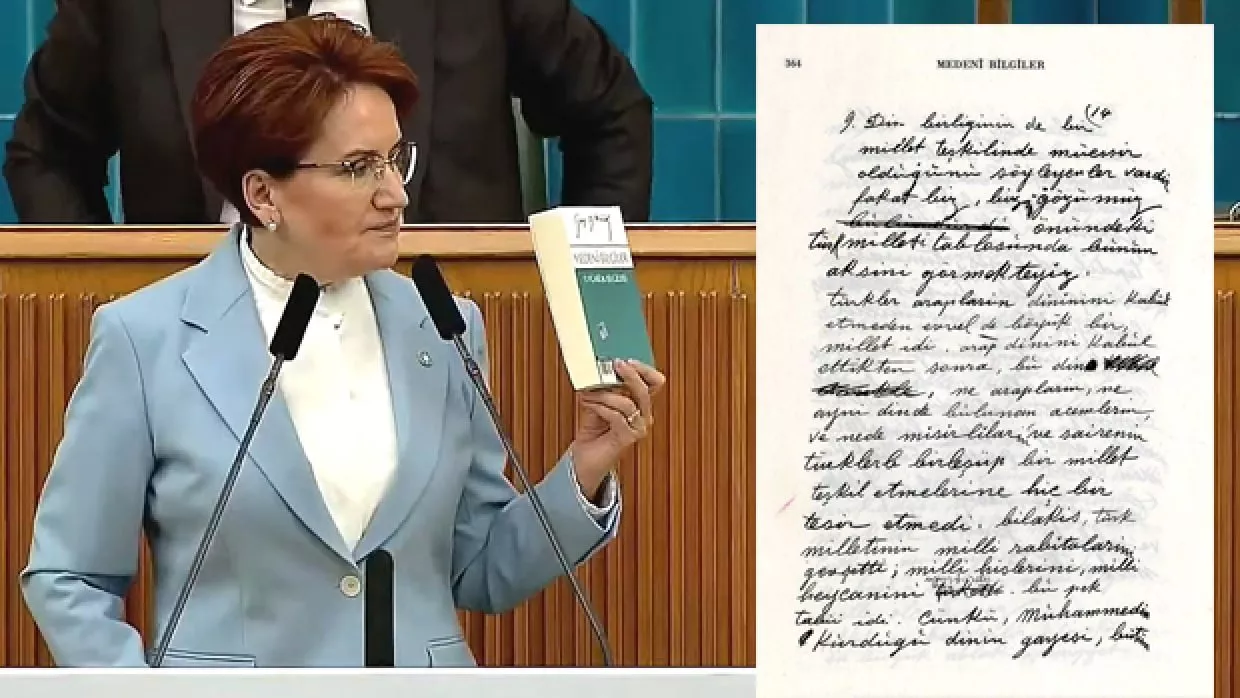 MEDENİ BİLGİLER
364
MEDENÎ BİLGİLER
9. Din birliğinin de bir
millet teşkilinde müessir
olduğunu söyleyenler vardır
fakat biz, bizim gözümüz
önündeki
türk milleti tablosunda bunun
aksini görmekteyiz.
türkler arapların dinini kabul
etmeden evvel de büyük bir
millet idi. arap dinini kabul
ettikten sonra, bu din
, ne arapların, ne
ayni dinde bulunan acemlerin,
ve nede mısırlıların ve sairenin
türklerle birleşip bir millet
teşkil etmelerine hiç bir
tesir etmedi. bilakis, türk
milletinin milli rabıtalarını
gevşetti; milli hislerini, milli
heycanini . bu pek
tabii idi. Çünkü, Muhammedin
Kurduğu dinin gayesi, bütün